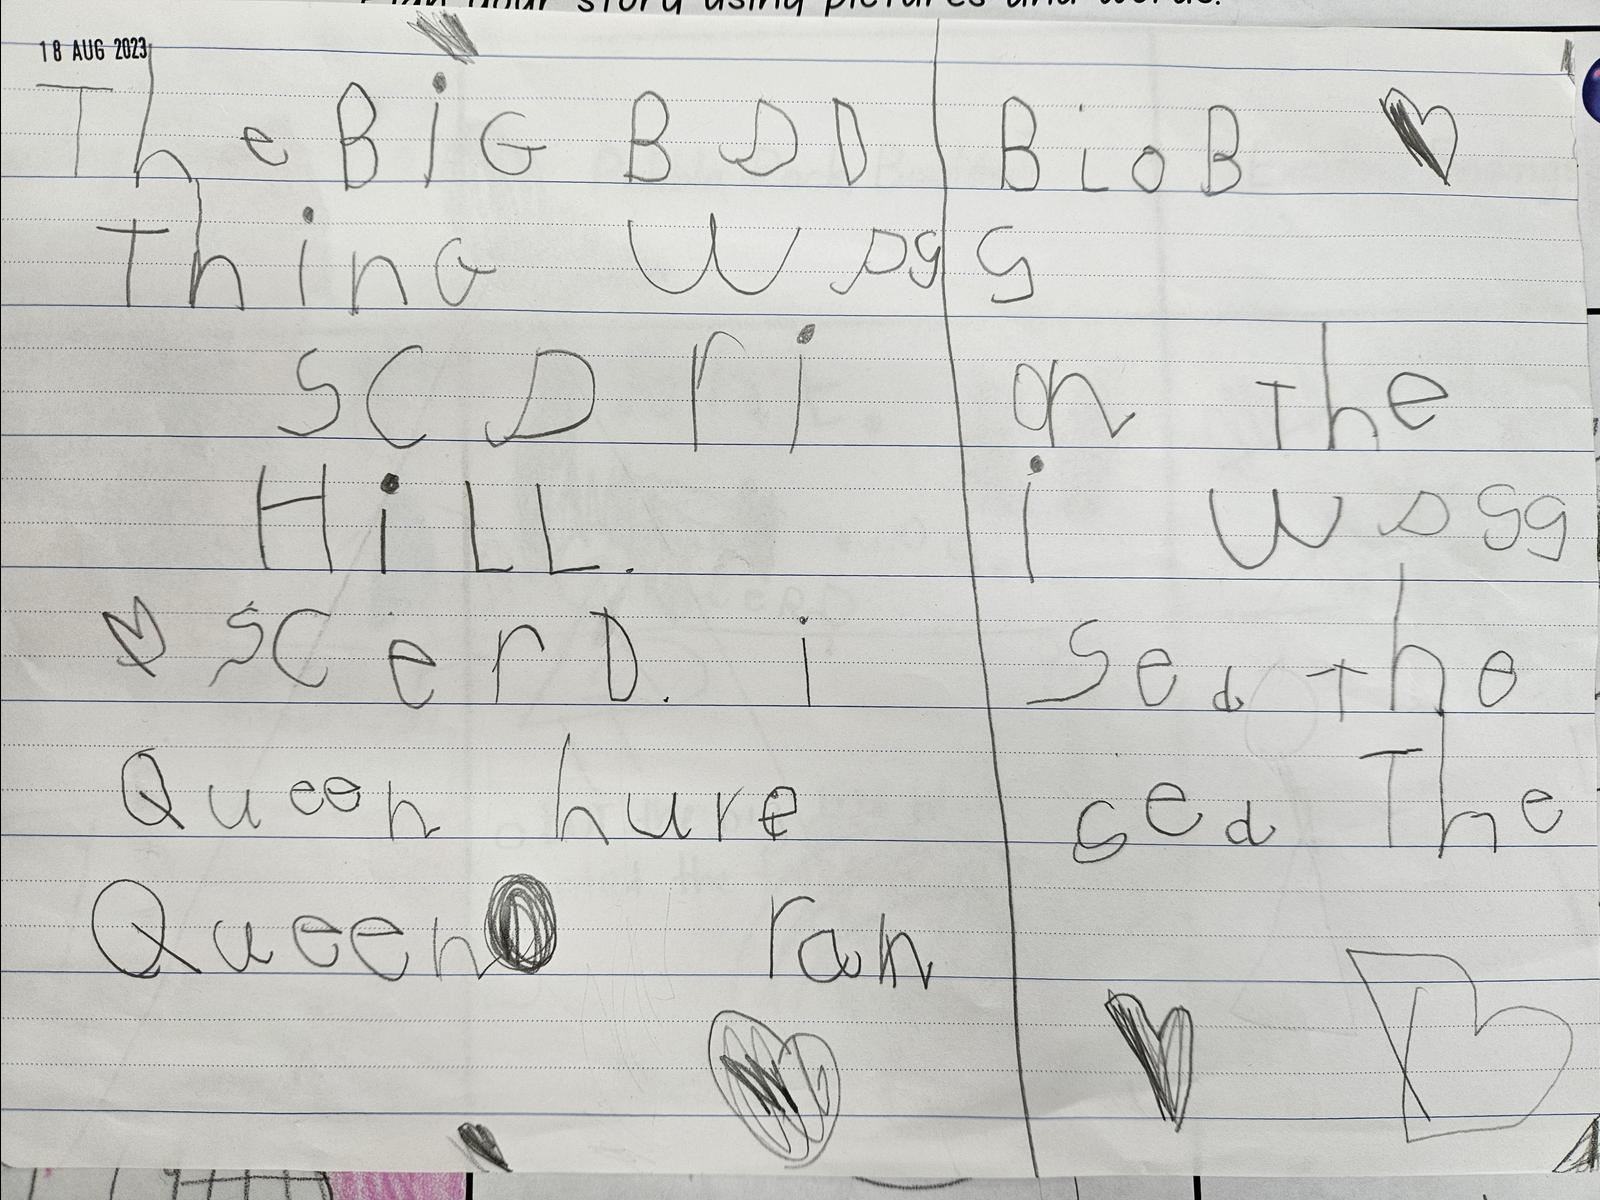 Plan your story using pictures and words.
18 AUG 2023
The BiG BaD BioB
ThinG wasg s
scari on the
HiLL. i wasg
scerD. i sed the
Queen hure sed The
Queen ran